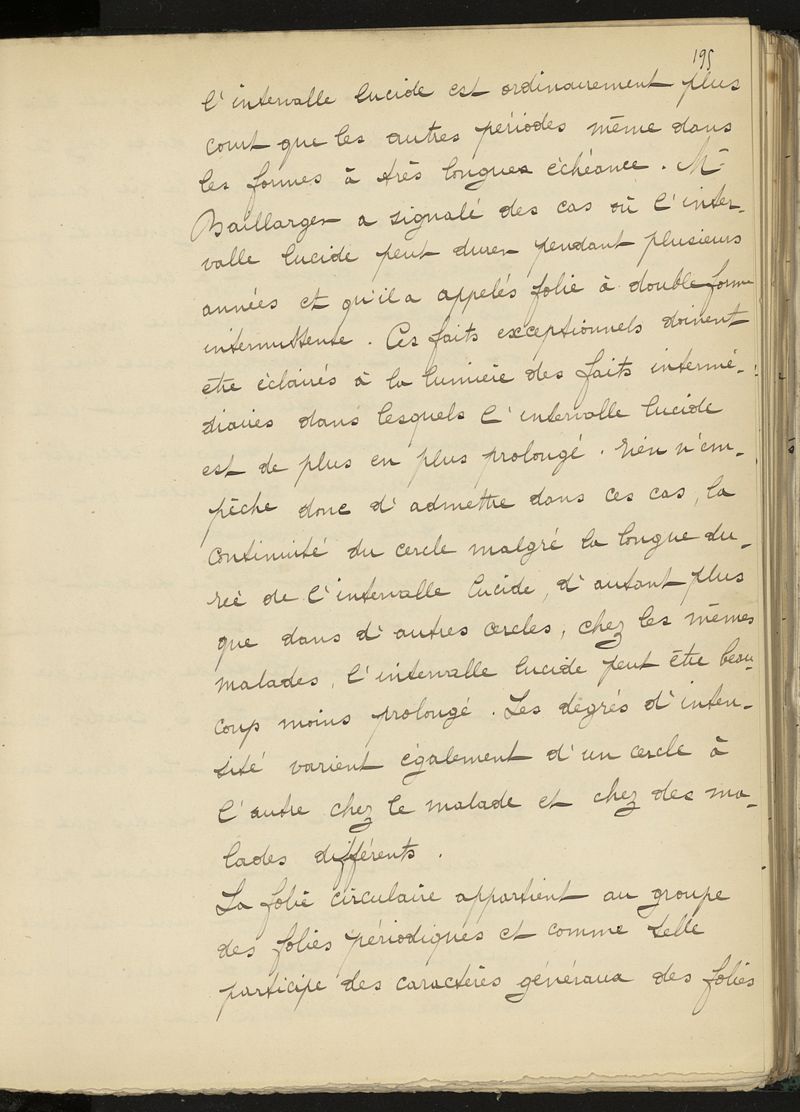 195
l'intervalle lucide est ordinairement plus
court que les autres périodes même dans
les formes à très longues échéance. Mr
Baillarger a signalé des cas où l'inter-
valle lucide peut durer pendant plusieurs
années et qu'il a appelés folie à double forme
intermittente. Ces faits exceptionnels doivent
etre éclairés à la lumière des faits intermé-
diaires dans lesquels l'intervalle lucide
est de plus en plus prolongé. rien n'em-
pêche donc d'admettre dans ces cas, la
continuité du cercle malgré la longue du-
reé de l'intervalle lucide, d'autant plus
que dans d'autres cercles, chez les mêmes
malades, l'intervalle lucide peut être beau-
coup moins prolongé. Les dégrés d'inten-
sité varient également d'un cercle à
l'autre chez le malade et chez des ma-
lades différents.
La folie circulaire appartient au groupe
des folies périodiques et comme telle
participe des caractères généraux des folies